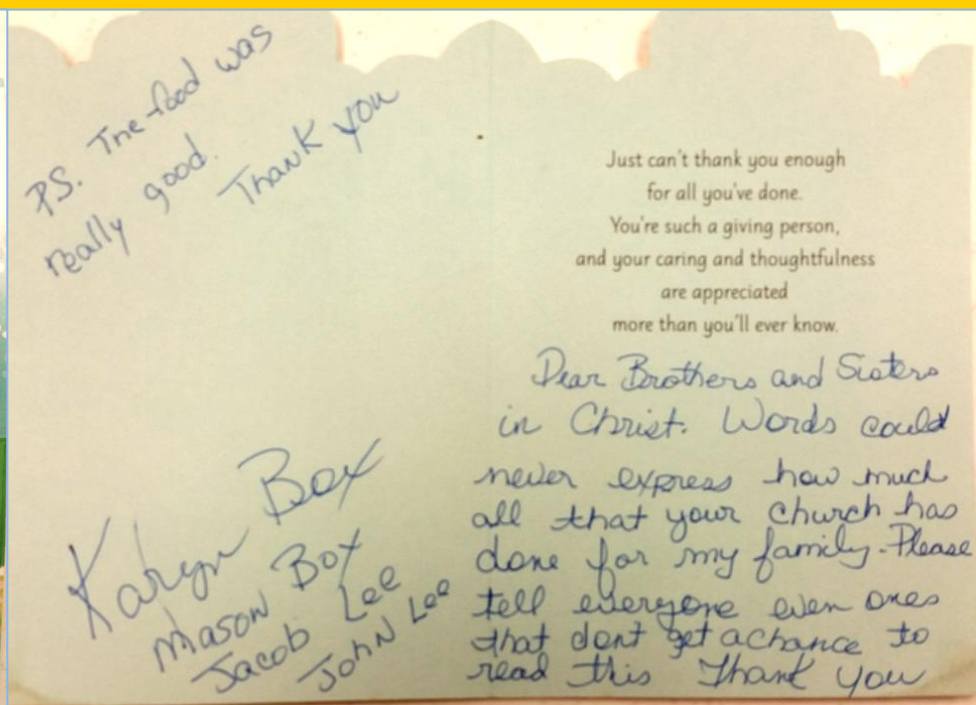 P.S. The food was
really good.
Thank you
Karyn Box
Mason Box
Jacob Lee
John Lee
Just can't thank you enough
for all you've done.
You're such a giving person,
and your caring and thoughtfulness
are appreciated
more than you'll ever know.
Dear Brothers and Sisters
in Christ. Words could
never express how much
all that your church has
done for my family. Please
tell everyone even ones
that dont get a chance to
read this Thank you